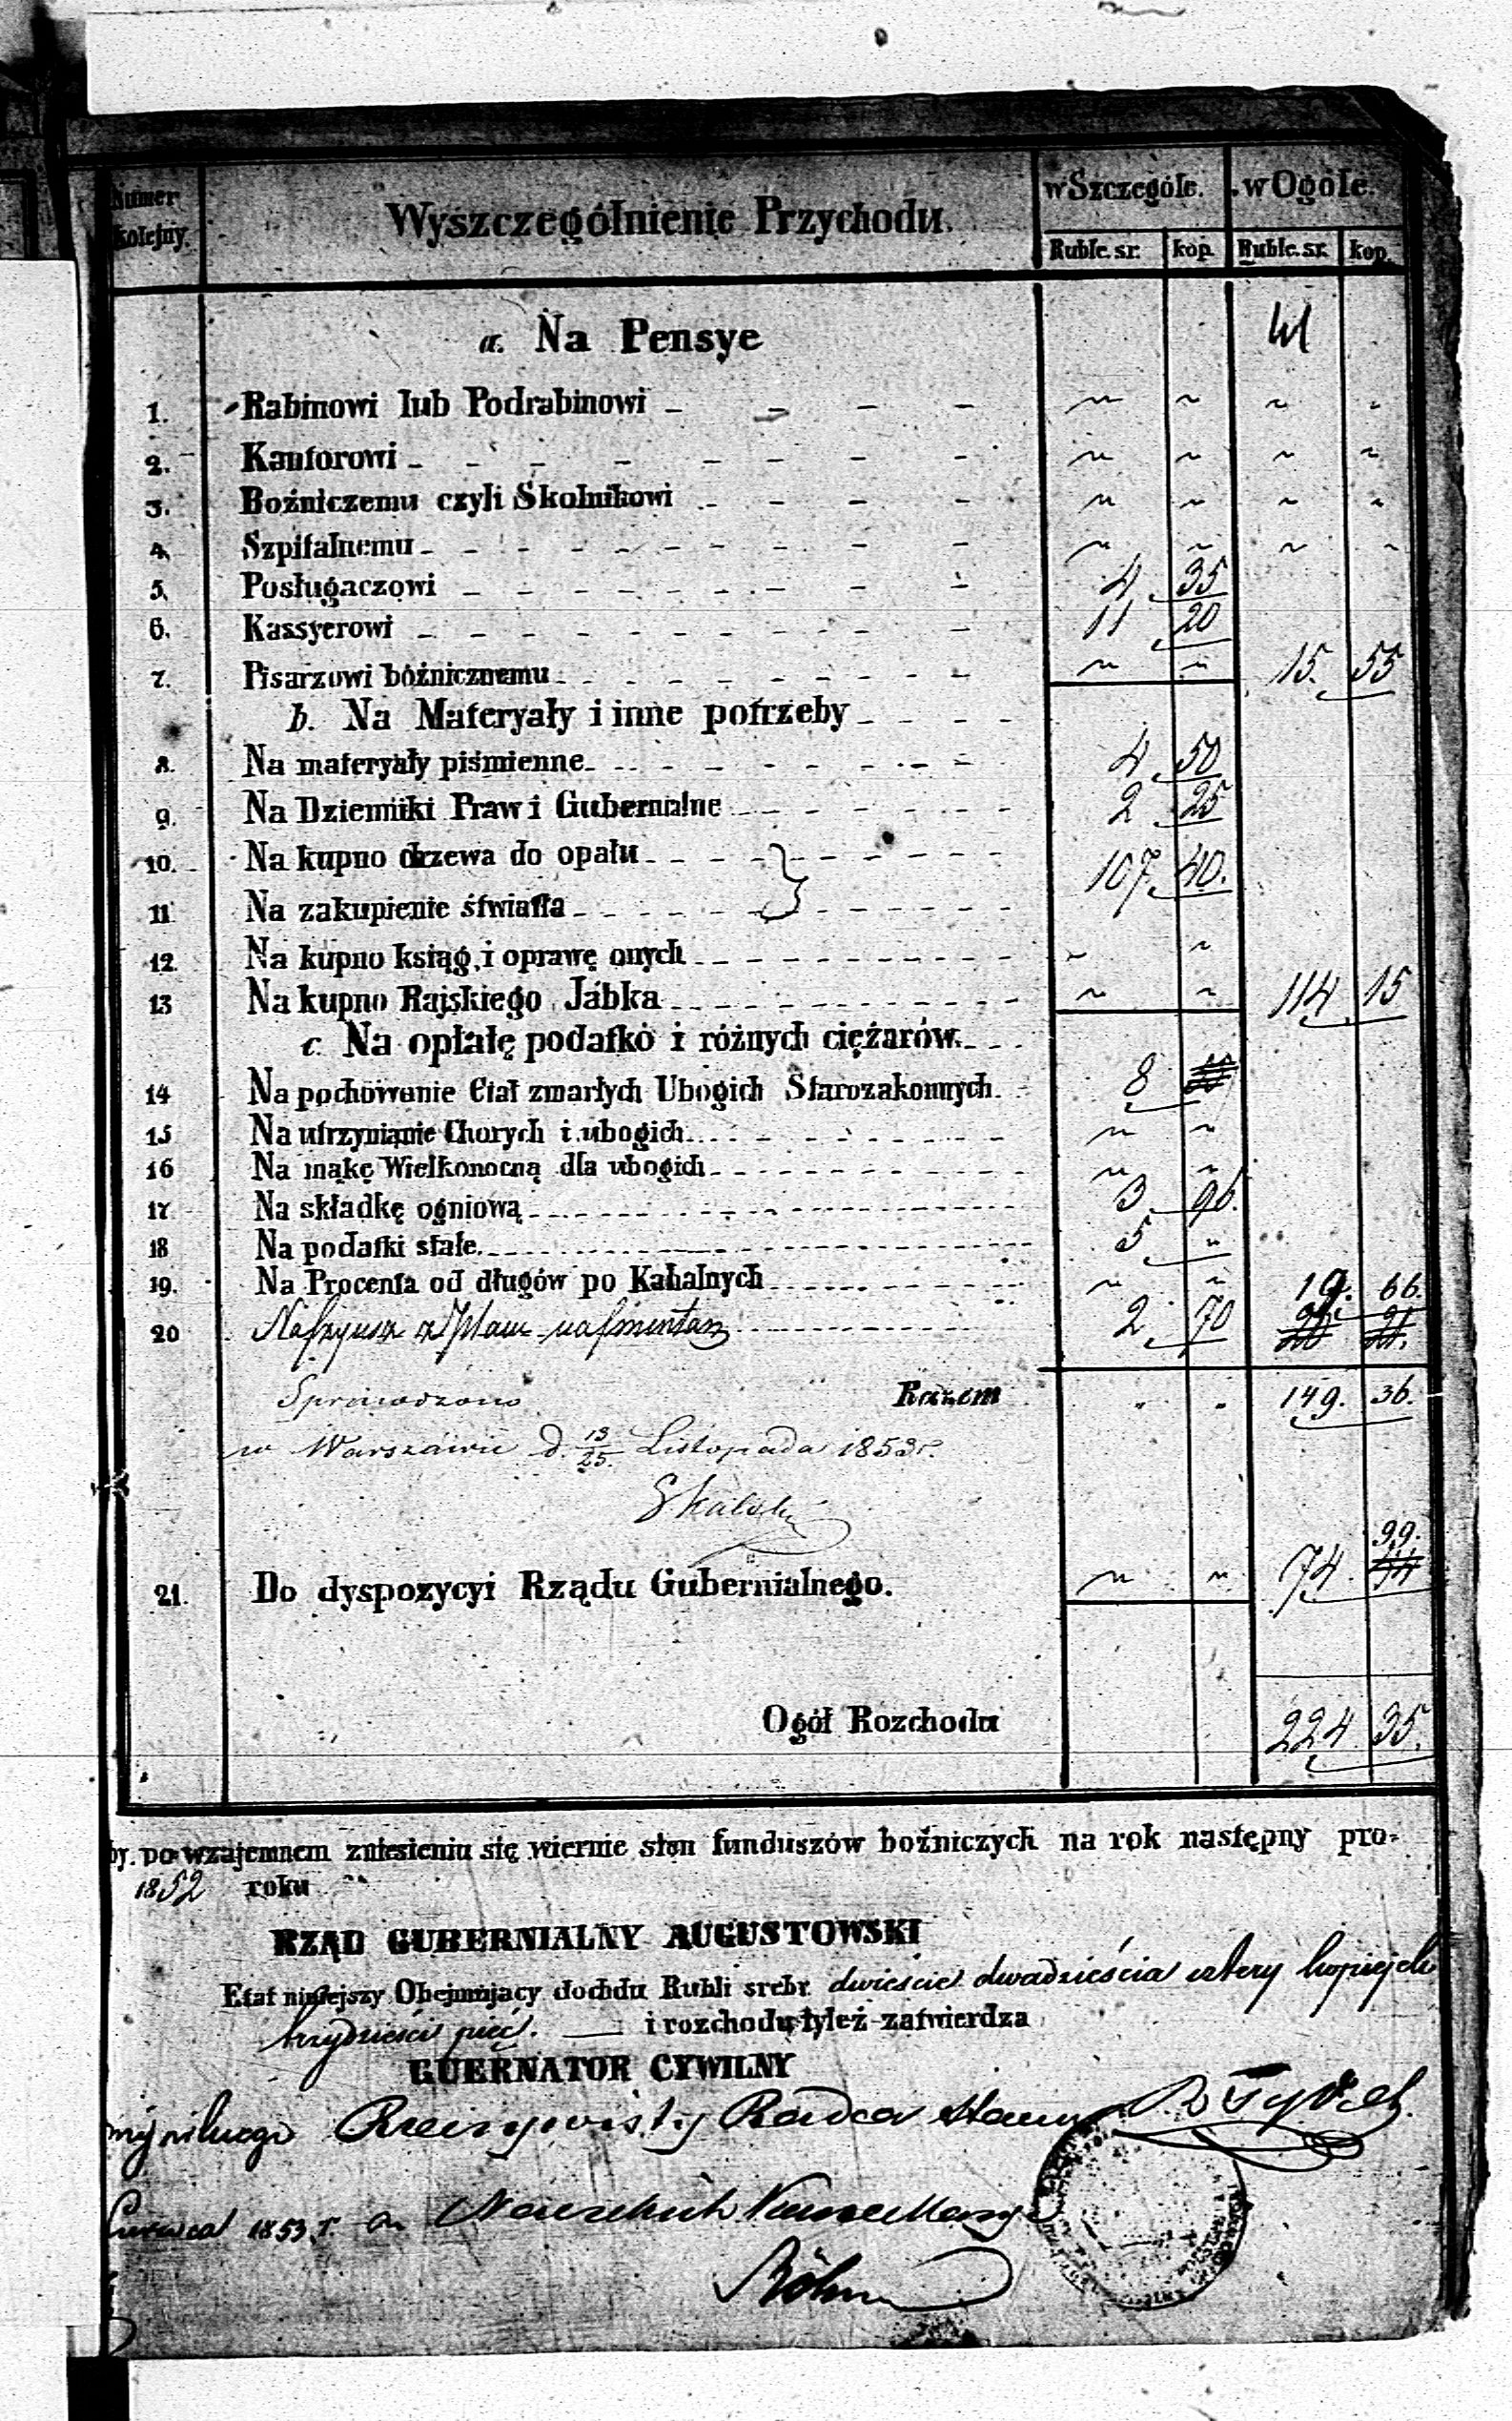 Numer kolejny. Wyszczególnienie Przychodu. w Szczególe. w Ogóle.
Ruble. sr. kop. Ruble. sr. kop.
a. Na Pensye
1. Rabinowi lub Podrabinowi - - - - ~ ~ ~ ~
2. Kantorowi - - - - - - - ~ ~ ~ ~
3. Boźniczemu czyli Skolnikowi - - - - ~ ~ ~ ~
4. Szpitalnemu - - - - - - - ~ ~ ~ ~
5. Posługaczowi - - - - - - - 4 35
6. Kassyerowi - - - - - - - 11 20
7. Pisarzowi bóźnicznemu - - - - - - - ~ ~ 15. 55
b. Na Materyały i inne potrzeby - - - -
8. Na materyały piśmienne - - - - - - 4 50
9. Na Dzienniki Praw i Gubernialne - - - - - 2 25
10. Na kupno drzewa do opału - - - - - - }
107. 40.
11 Na zakupienie światła - - - - - - }
12. Na kupno ksiąg, i oprawę onych - - - - - - ~ ~
13 Na kupno Rajskiego Jábka - - - - - - ~ ~ 114 15
c. Na opłatę podatkó i różnych ciężarów. - - -
14 Na pochowanie Ciał zmarłych Ubogich Starozakonnych. 8
15 Na utrzymanie Chorych i ubogich - - - - - - ~ ~
16 Na mąkę Wielkonocną dla ubogich - - - - - - ~ ~
17 Na składkę ogniową - - - - - - 3 96.
18 Na podatki stałe. - - - - - - 5 ~
19. Na Procenta od długów po Kahalnych - - - - - - ~ ~ 19. 66.
20 2. 70
Sprawdzono Razem 149. 36.
w Warszawie d. 13/25. Listopada 1853 r.
Skalski
99.
21. Do dyspozycyi Rządu Gubernialnego. ~ ~ 74. 44
Ogół Rozchodu 224 35.
by. po wzajemnem zniesieniu się wiernie stan funduszów boźniczych na rok następny pro-
1852 roku
RZĄD GUBERNIALNY AUGUSTOWSKI
Etat niniejszy Obejmujący dochdu Rubli srebr. dwieście dwadzieścia cztery kopiejek
trzydzieści pięć. — i rozchodu tyleż zatwierdza
GUERNATOR CYWILNY
Rzeczywisty Radca Stanu
Czerwca 1853 r. Naczelnik Kancellaryi
Böhm